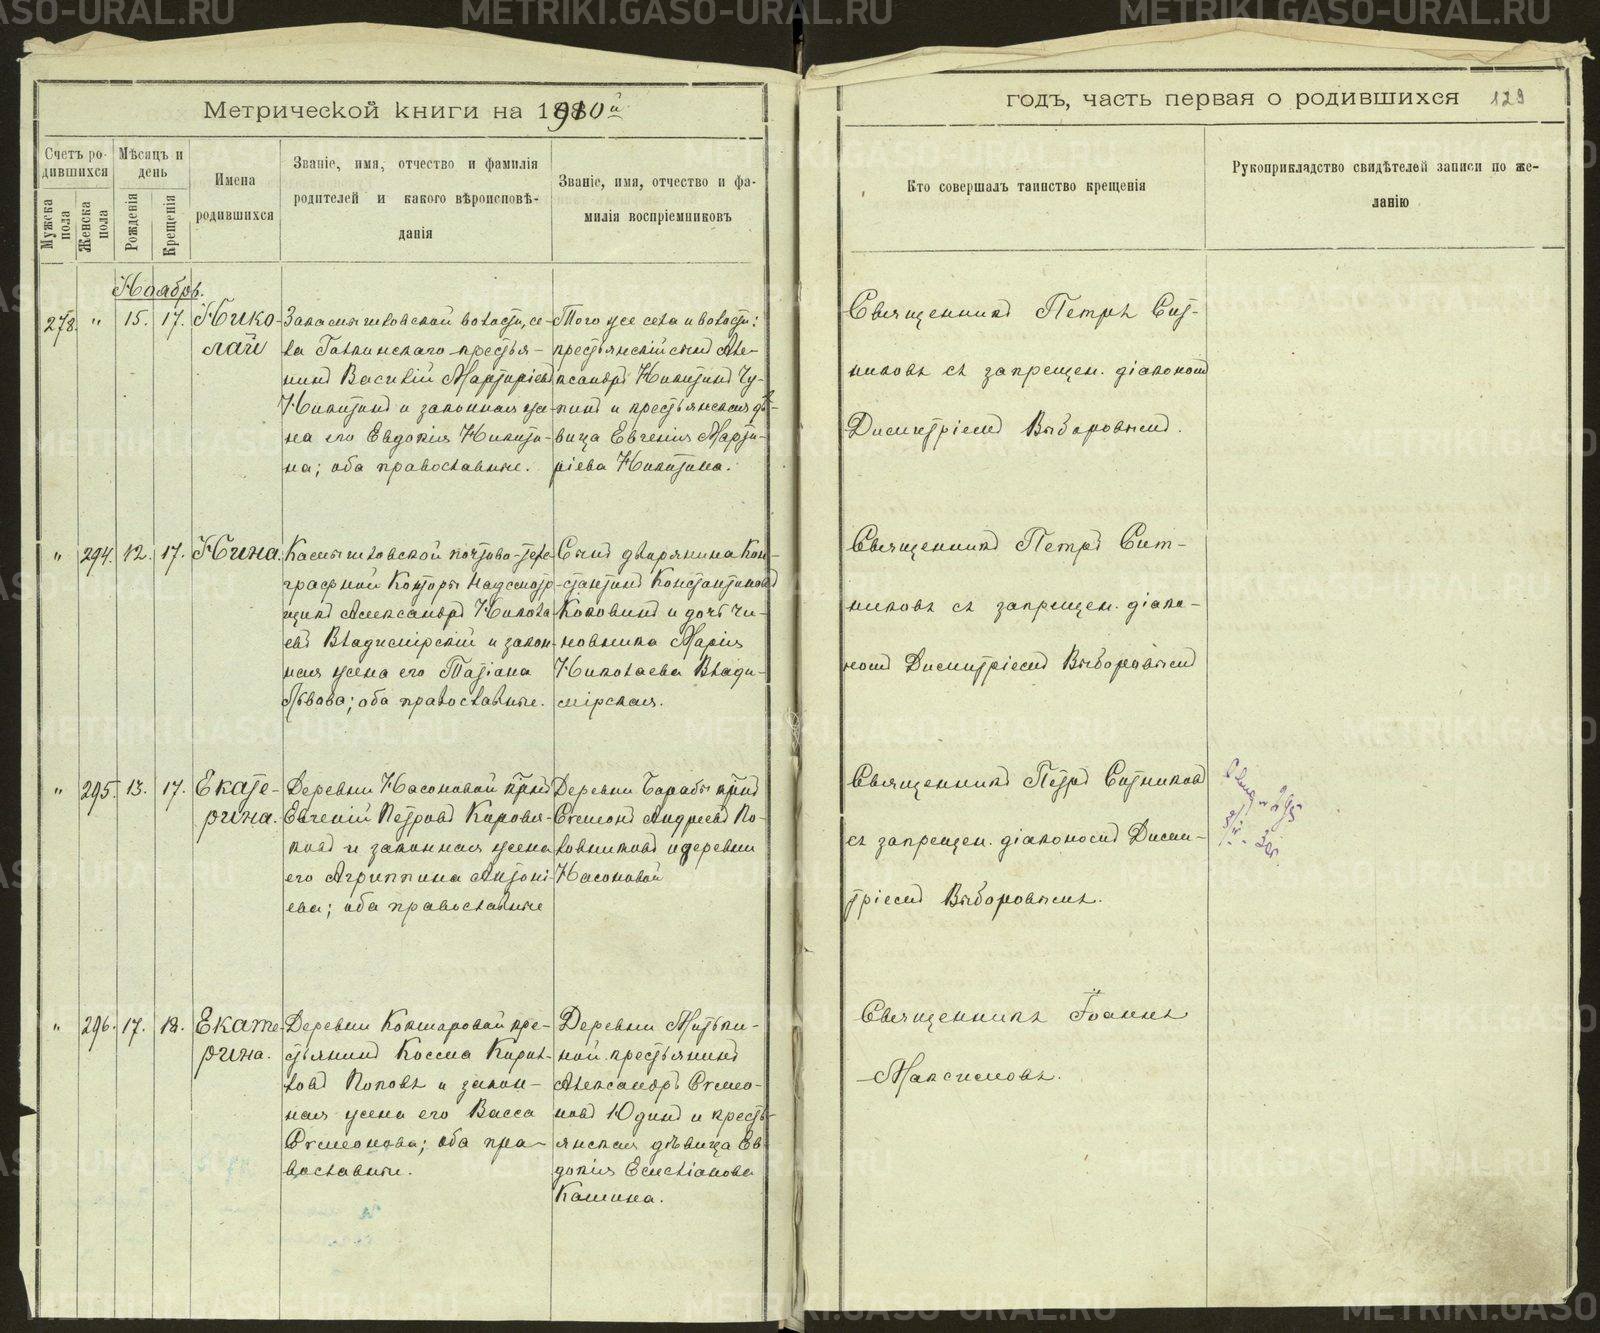 METRIKI.GASO-URAL.RU
Метрической книги на 1910й
годъ, часть первая о родившихся 129
Счетъ ро-
дившихся
Мужеска пола
Женска пола
Мѣсяцъ и
день
Рожденія
Крещенія
Имена
родившихся
Званіе, имя, отчество и фамилія
родителей и какого вѣроисповѣ-
данія
Званіе, имя, отчество и фа-
милія воспріемниковъ
Кто совершалъ таинство крещенія
Рукоприкладство свидѣтелей записи по же-
ланію
Ноябрь.
278. " 15. 17.
Нико-
лай
Закамышловской волости, се-
ла Галкинскаго крестья-
нинъ Василій Мартиріевъ
Никитинъ и законная же-
на его Евдокія Никити-
на; оба православные.
Того же села и волости:
крестьянскій сынъ Але-
ксандръ Никитинъ Чу-
пинъ и крестьянская дѣ-
вица Евгенія Марти-
ріева Никитина.
Священникъ Петръ Сит-
никовъ съ запрещен. діакономъ
Димитріемъ Выборовымъ.
" 294. 12. 17.
Нина.
Камышловской почтово-теле-
графной Конторы Надсмотр-
щикъ Александръ Никола-
евъ Владимірскій и закон-
ная жена его Татіана
Львова; оба православные.
Сынъ дворянина Кон-
стантинъ Константиновъ
Коковинъ и дочь чи-
новника Марія
Николаева Влади-
мірская.
Священникъ Петръ Сит-
никовъ съ запрещен. діако-
номъ Димитріемъ Выборовымъ
" 295. 13. 17.
Екате-
рина.
Деревни Насоновой кр-нъ
Евгеній Петровъ Кировъ
и законная жена
его Агриппина Антоні-
ева; оба православные
Деревни Барабы кр-нъ
Стемонъ Андреевъ По-
ловниковъ и деревни
Насоновой
Священникъ Петръ Ситниковъ
съ запрещен. діакономъ Дими-
тріемъ Выборовымъ.
" 296. 17. 18.
Екате-
рина.
Деревни Кокшаровой кре-
стьянинъ Косма Кирил-
ловъ Поповъ и закон-
ная жена его Васса
Стемонова; оба пра-
вославные.
Деревни Митьки-
ной крестьянинъ
Александръ Стемо-
новъ Юдинъ и кресть-
янская дѣвица Ев-
докія Емеліанова
Кашина.
Священникъ Іоаннъ
Максимовъ.